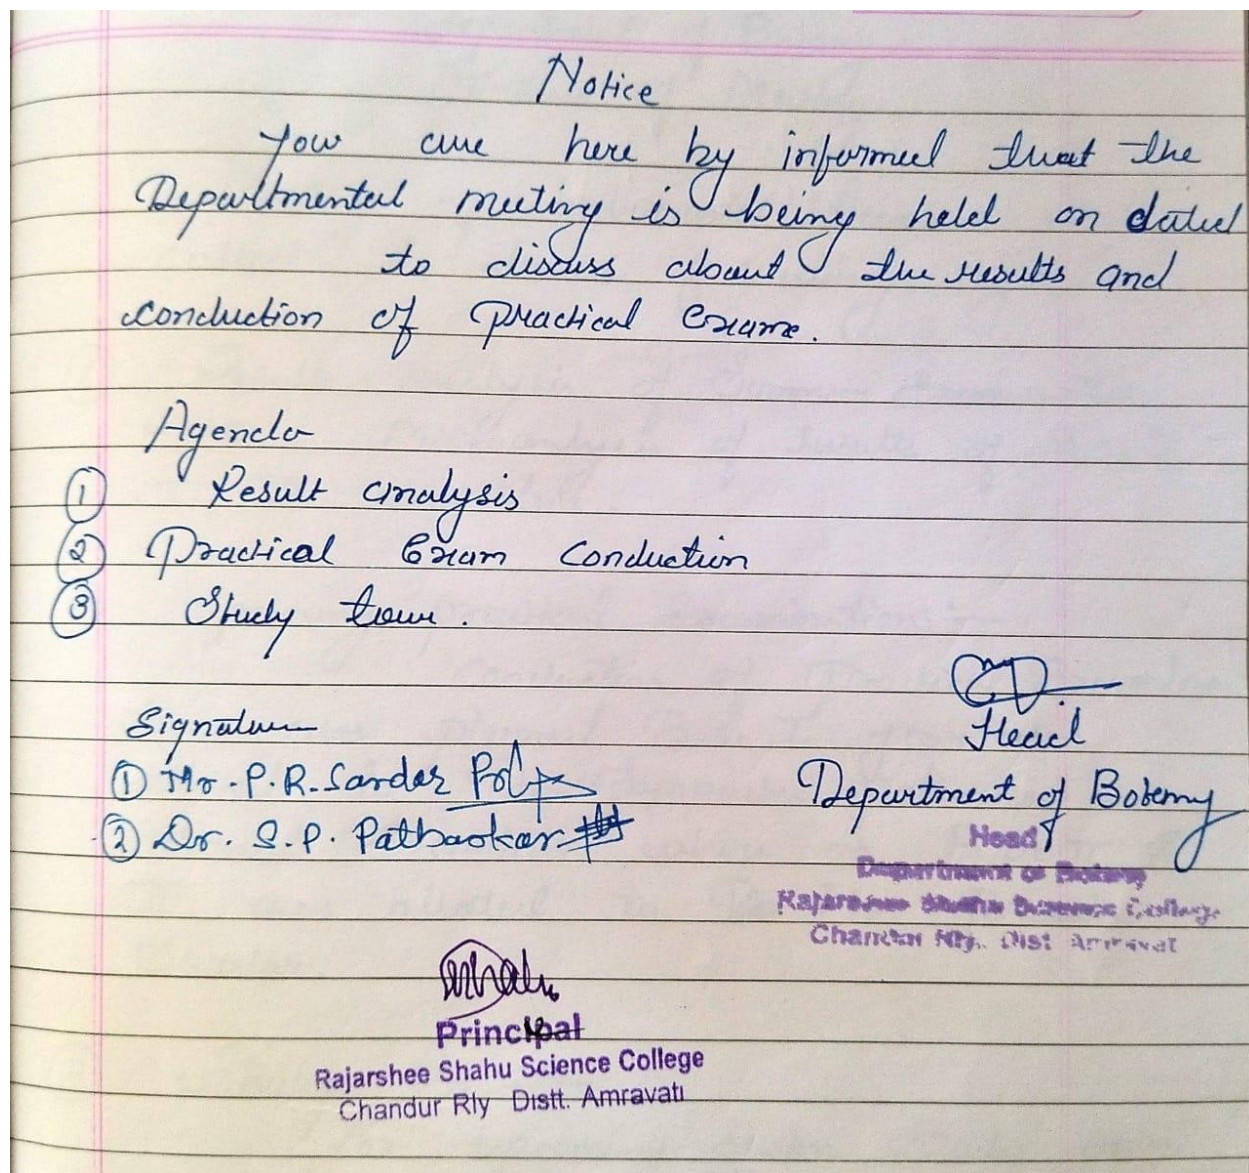 Notice
You are here by informed that the
Departmental meeting is being held on dated
to discuss about the results and
conduction of practical Exame.
Agenda
① Result analysis
② Practical Exam Conduction
③ Study tour.
Head
Signature
① Mr. P. R. Sardar
Department of Botany
② Dr. S. P. Patbaokar
Head
Department of Botany
Rajarshee Shahu Science College
Chandur Rly. Dist Amravati
Principal
Rajarshee Shahu Science College
Chandur Rly Distt. Amravati